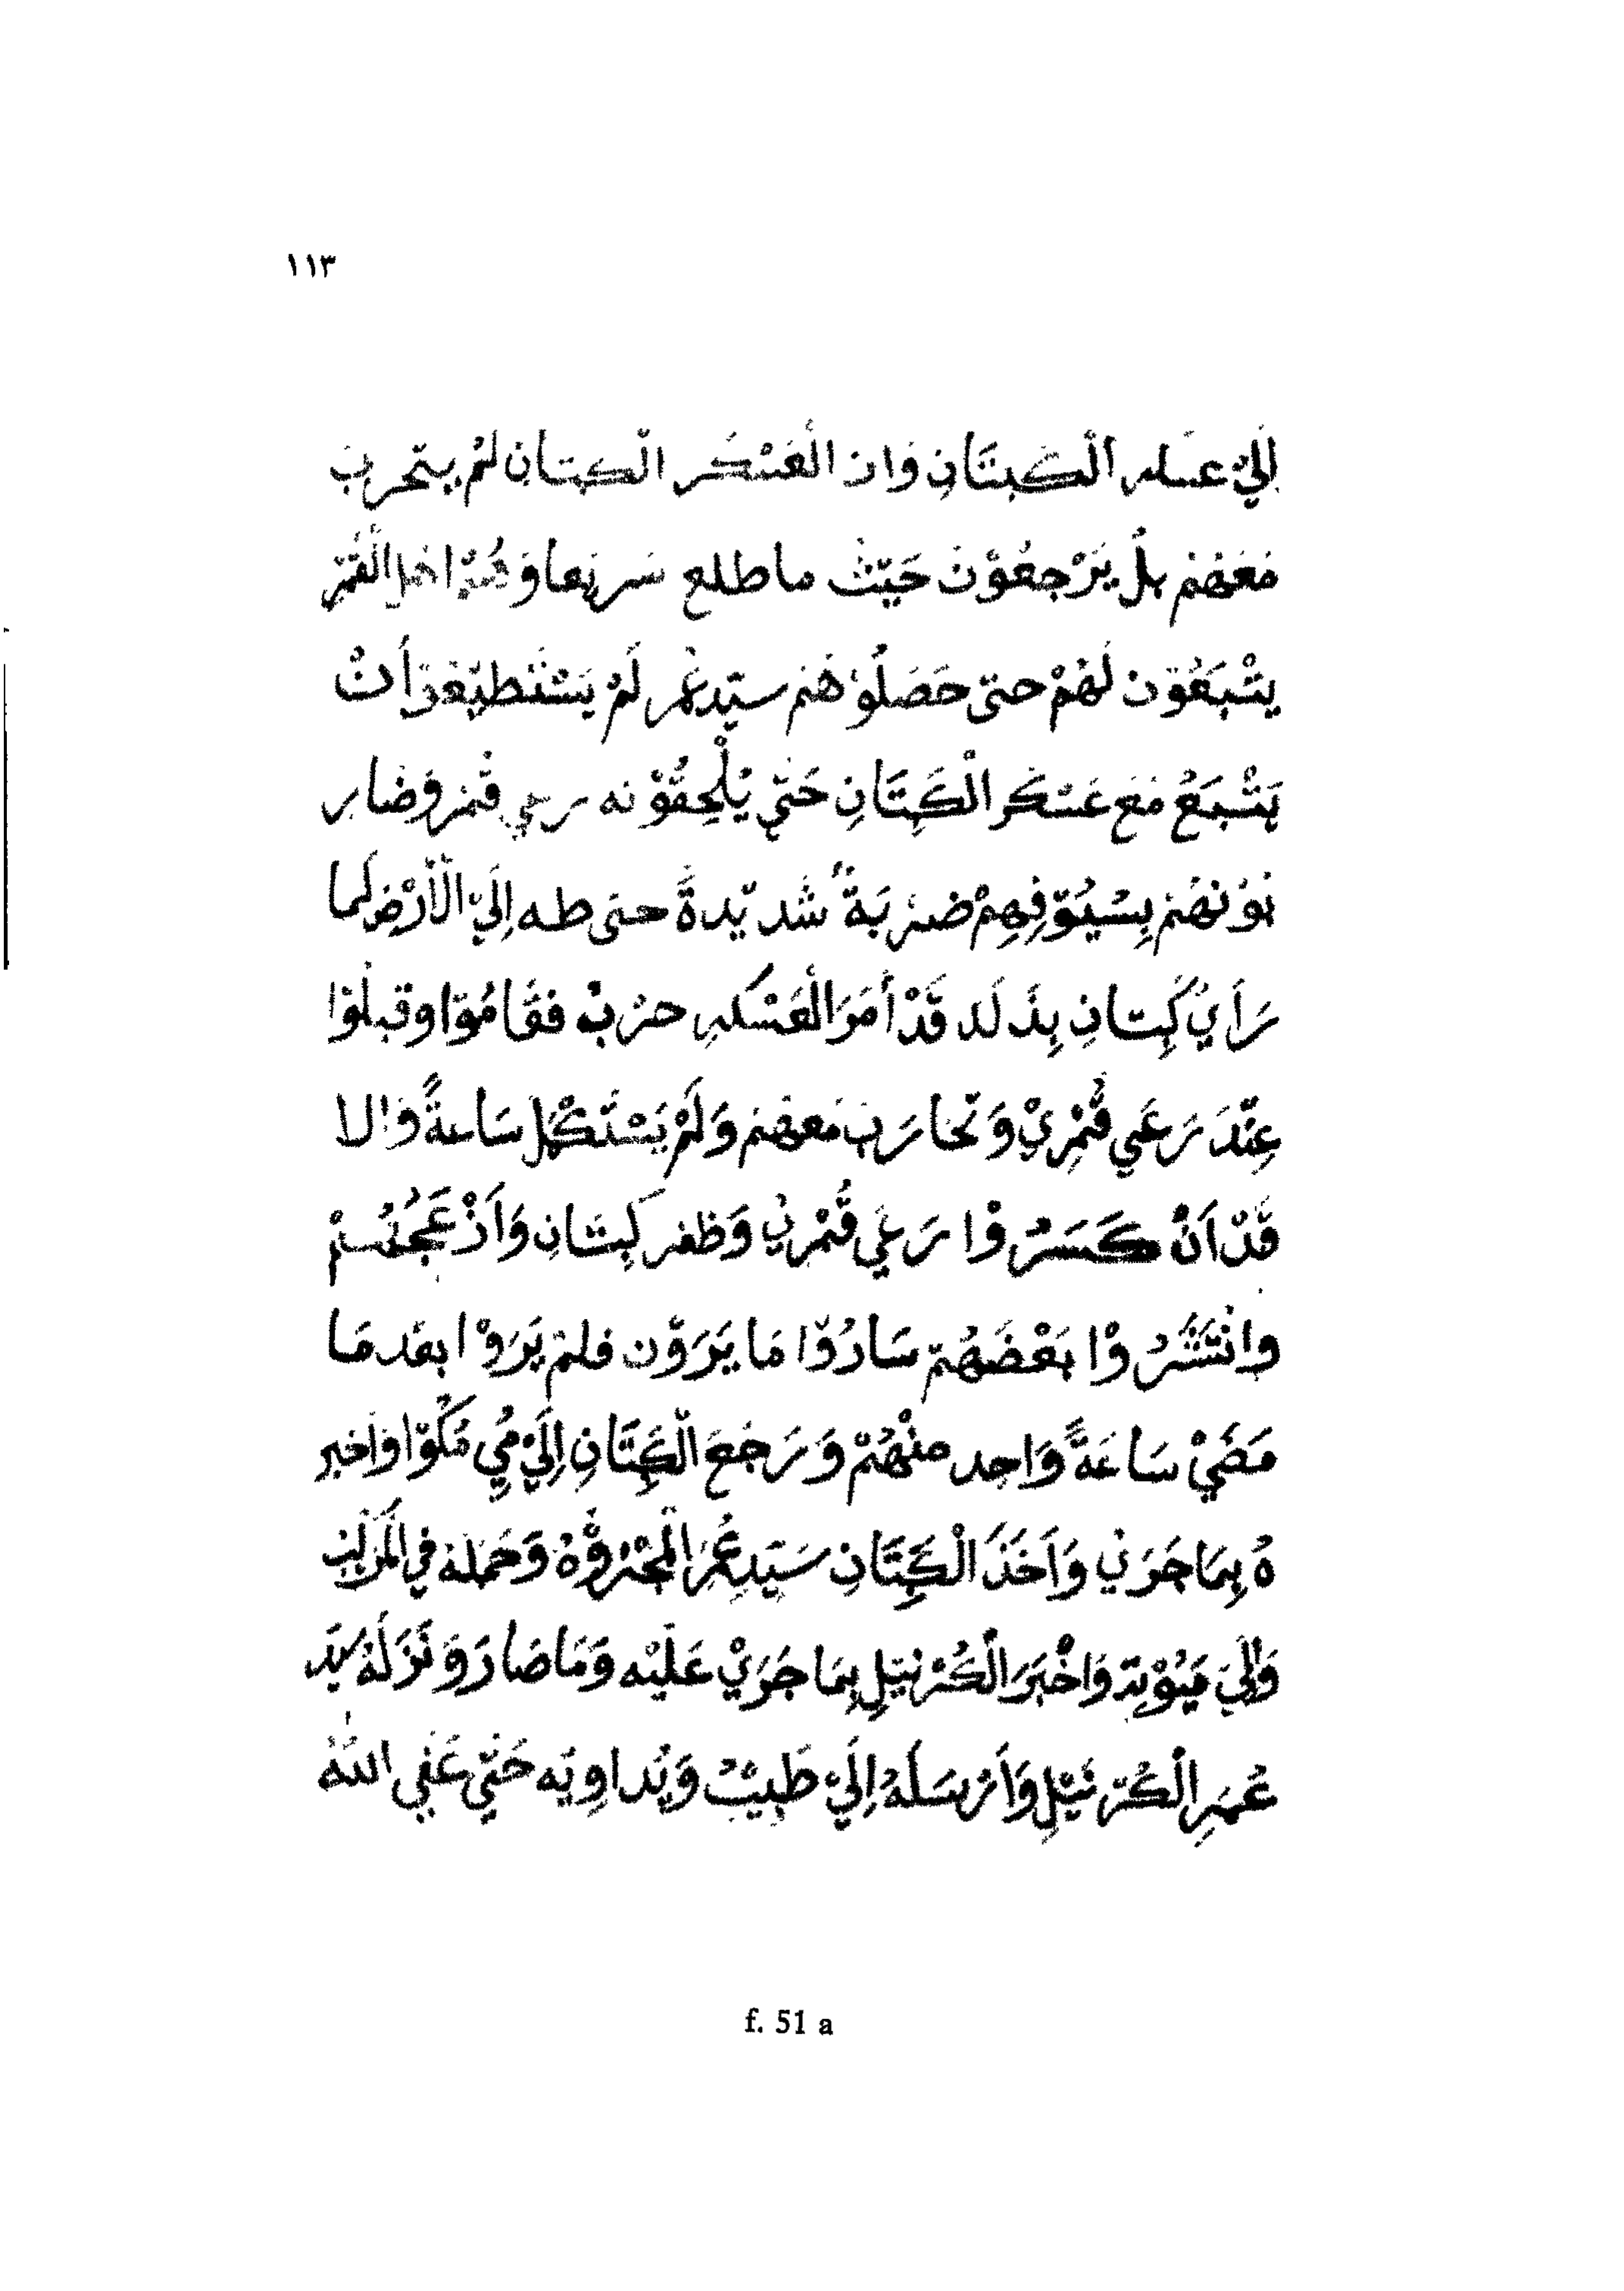 ١١٣
اِلَيْ عسله الْكَبِتَانِ وَان الْعَسْكَر الْكبتان لَمْ يتحرب
مَعَهُمْ بلْ يَرْجِعُوْنَ حَيْث ما طلع سَرِيْعا وَ اهل الْقُمْر
يتْبَعُوْن لَهُمْ حتى حَصَلُوْ هُمْ سيّد عُمر لَمْ يَسْتَطيْعُوْ أَنْ
يَتْبَعُ مَعَ عَسْكَر الْكَبِتَانِ حَتّي يُلْحِقُوْنه رعي قُمْر وَضار
بُوْنهُمْ بِسُيُوْفِهِمْ ضرْبَةً شديْدةً حتى طه اِلَيْ الْاَرْض لَما
رَأَيْ كَبِتانِ بِذَلَك قَدْ أَمَرَ الْعَسْكر حرْبْ فقَامُوْا وقبلوْا
عِنْدَ رَعَيِ قُمْرِيْ وَتحَارَب مَعهُمْ وَلَمْ يَسْتَكْمل سَاعةً وَالا
قَدْ اَنْ كَسَرُوْا رَعَيِ قُمْرِيْ وَظفر كَبِتَانِ وَاَزْعَجُهُمْ
وانْتَشَرُوْا بَعْضَهُمْ سَارُوْا مَا يَرَوْن فلمْ يَرَوْا بعْد مَا
مَضَيْ سَاعَةً وَاحِد منْهُمْ وَرَجَعَ الْكَبِتَانِ اِلَيْ مِيِ مُكُوْا وَاَخبر
هُ بِمَا جَرَيْ وَاَخَذَ الْكَبِتَانِ سَيّدِ عُمَرَ الْمجْرُوْهُ وَحَمَلهُ فِي الْمَرْكَبْ
وَاِلَيْ مَيُوْتة وَاخْبَرَ الْكُرْنيْلِ بِمَا جَرَيْ عَلَيْه وَمَا صَارَ وَ نَزَلَهُ سيّد
عُمَرِ الْكُرْنَيْلِ وَاَرْسَلَهُ اِلَيْ طَبِيْبْ وَيُداوِيَه حَتّي عَفِي اللهُ
f. 51 a